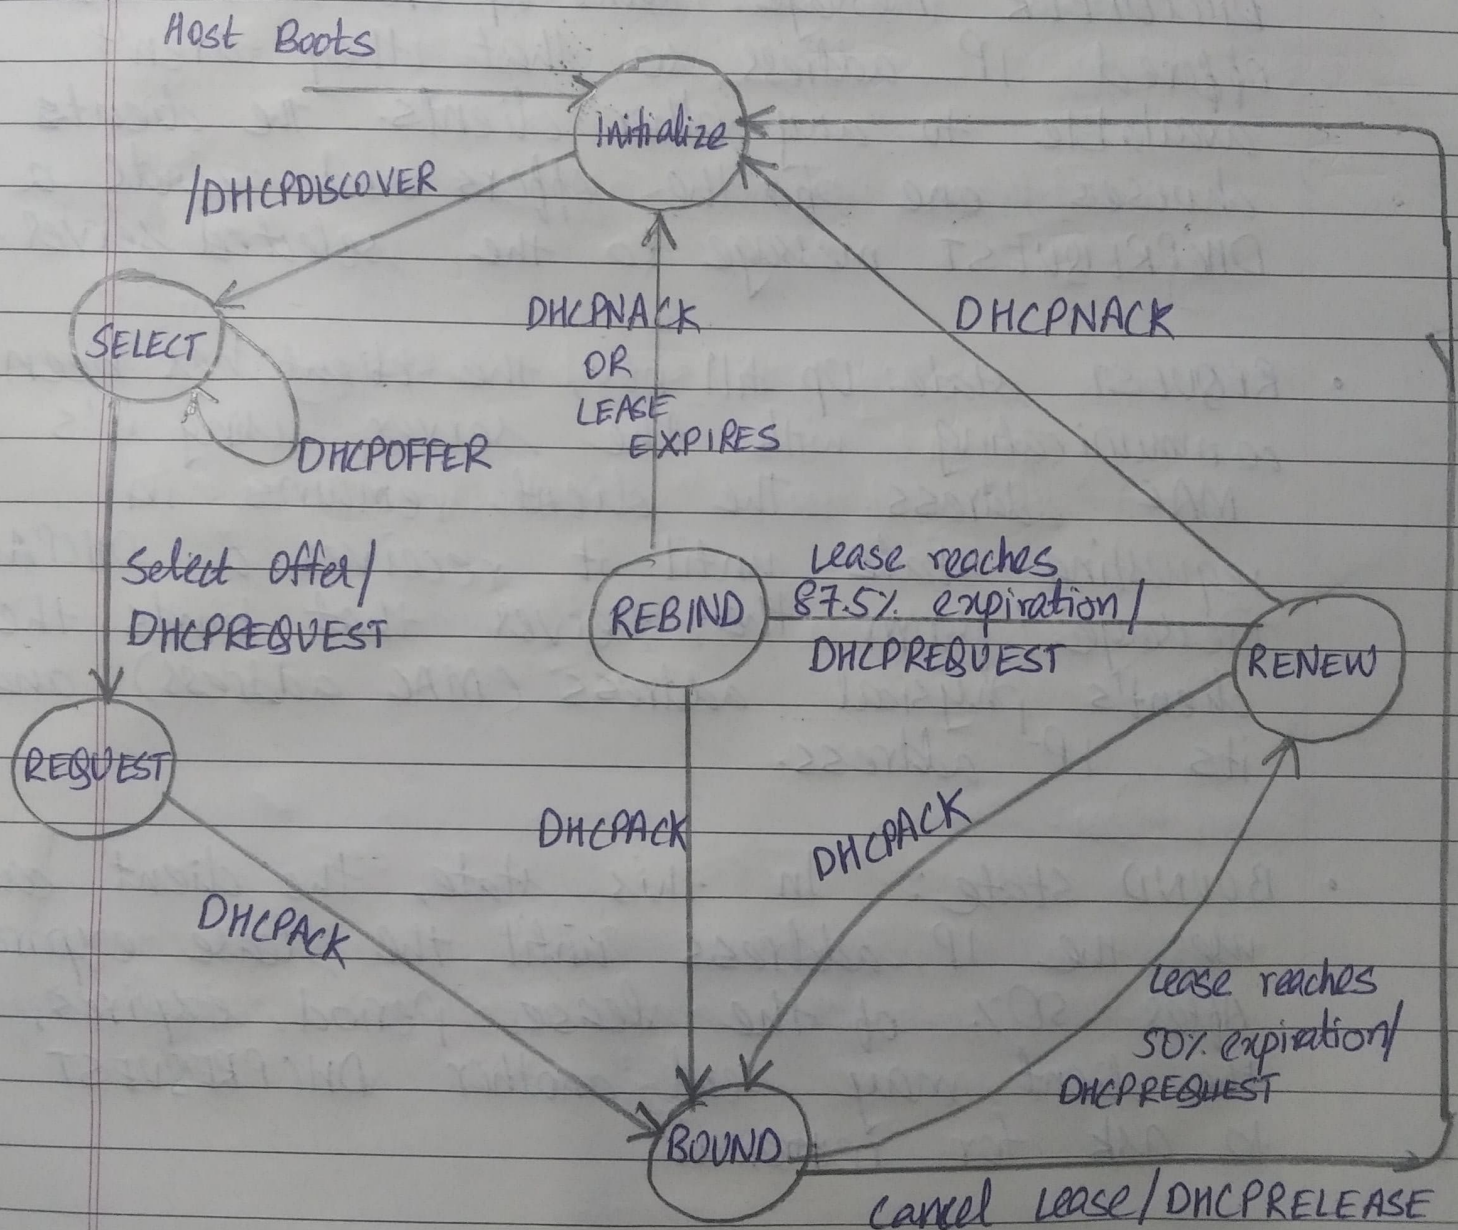 Host Boots
Initialize
/DHCPDISCOVER
SELECT
DHCPOFFER
DHCPNACK
OR
LEASE
EXPIRES
DHCPNACK
Select Offer/
DHCPREQUEST
REBIND
Lease reaches
87.5% expiration/
DHCPREQUEST
RENEW
REQUEST
DHCPACK
DHCPACK
DHCPACK
Lease reaches
50% expiration/
DHCPREQUEST
BOUND
Cancel Lease/DHCPRELEASE